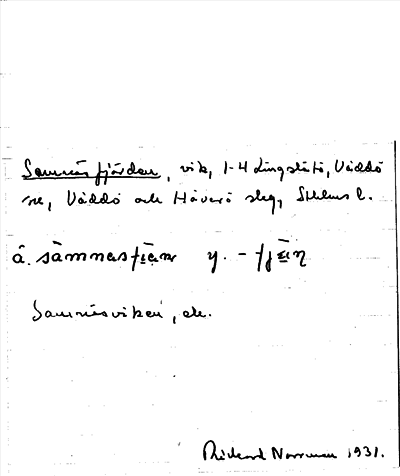 Samnäsfjärden, vik, 1-4 Lingslätö, Väddö
sn, Väddö och Häverö slg, Sthlms l.
å. sàmnasfiæ̀ṇ y. - fjæ̀ṇ
Samnäsviken, ek.
Rickard Norrman 1931.